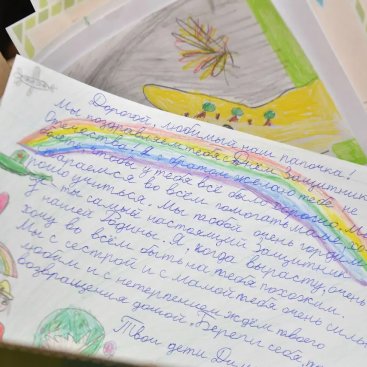 Дорогой, любимый наш папочка!
Мы поздравляем тебя с Днём Защитника
Отечества. Я с братом желаю тебе не
болеть, чтобы у тебя всё было хорошо. Мы
во всём помогать маме, хо
рошо учиться. Мы тобой очень гордим
ты самый настоящий защитник
нашей Родины. Я, когда вырасту, очень
хочу во всём быть на тебя похожим.
Мы с сестрой и с мамой тебя очень сильно
любим и с нетерпением ждём твоего
возвращения домой. Береги себя, па
Твои дети Дим